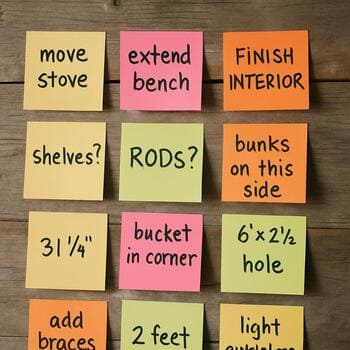 move
stove
extend
bench
FiNISH
INTERIOR
shelves?
RODS?
bunks
on this
side
31 1/4"
bucket
in corner
6'x2½
hole
add
braces
2 feet
light